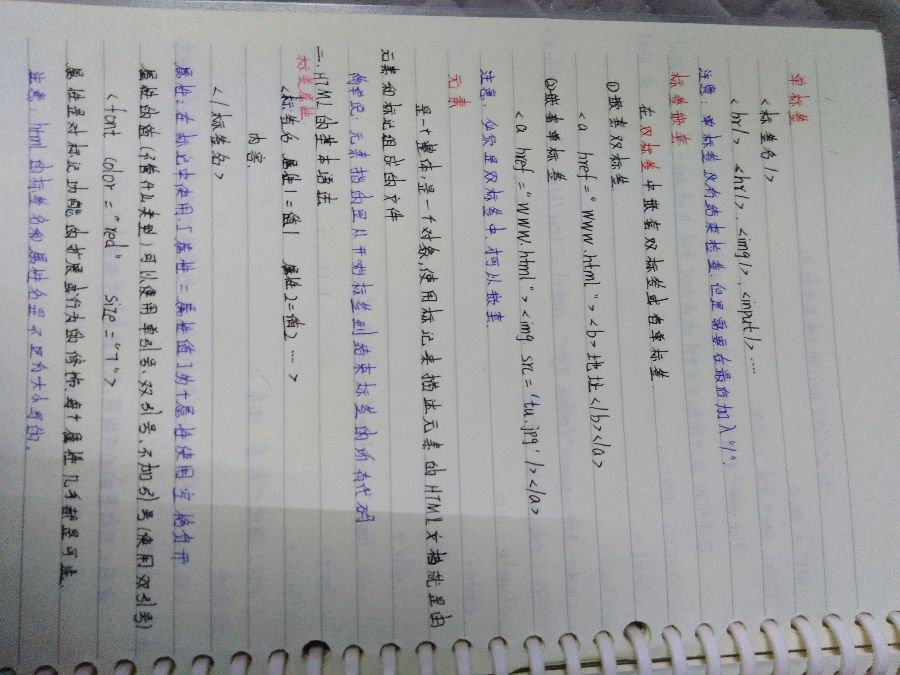 单标签
<标签名/>
<br/>、<hr/>、<img/>、<input/>....
注意：单标签没有结束标签，但是需要在最后加入"/".
标签嵌套
在双标签中嵌套双标签或者单标签
①嵌套双标签
<a href="www.html"><b>地址</b></a>
②嵌套单标签
<a href="www.html"><img src='tu.jpg'/></a>
注意：必须是双标签中，才可以嵌套.
元素
是一个整体，是一个对象，使用标记来描述元素的HTML文档就是由
元素和标记组成的文件
简单说：元素指的是从开始标签到结束标签的所有代码
二、HTML的基本语法
标签属性
<标签名 属性1=值1 属性2=值2 ....>
内容
</标签名>
属性：在标记中使用，[属性=属性值]多个属性使用空格分开
属性的值(不管什么类型)可以使用单引号、双引号、不加引号(使用双引号)
<font color="red" size="7">
属性是对标记功能的扩展或行为的修饰，每个属性几乎都是可选.
注意：html的标签名和属性名是不区分大小写的.